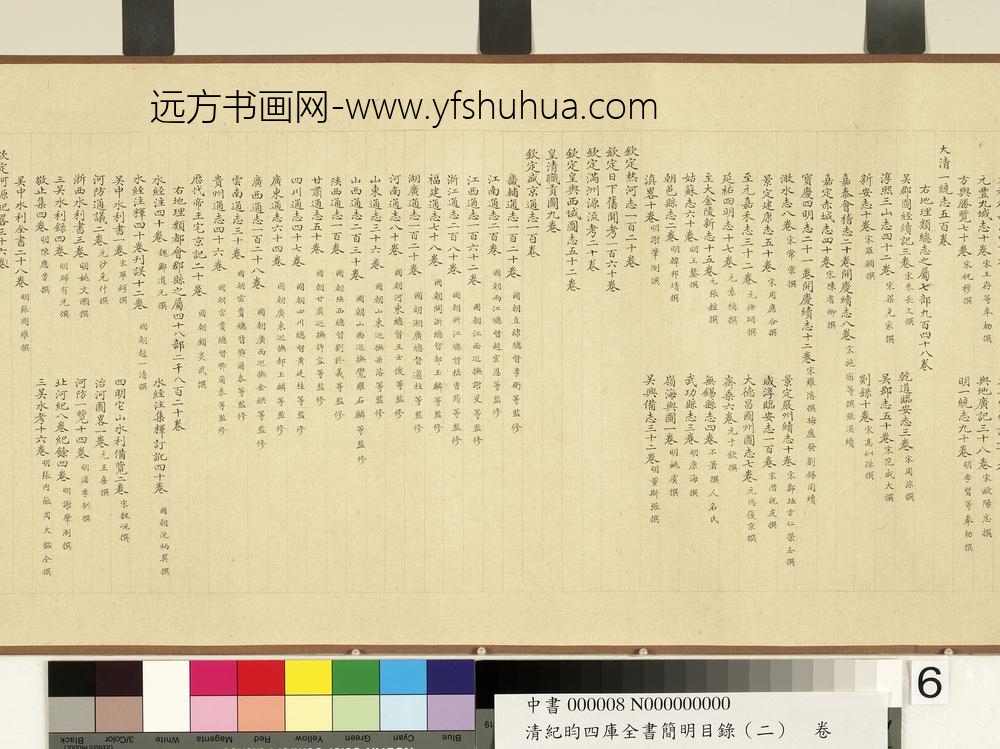 远方书画网-www.yfshuhua.com
元豐九域志十卷宋王存等奉勅撰
輿地廣記三十八卷宋歐陽忞撰
方輿勝覽七十卷宋祝穆撰
明一統志九十卷明李賢等奉勅撰
大清一統志五百卷
右地理類總志之屬七部九百四十八卷
吳郡圖經續記三卷宋朱長文撰
乾道臨安志三卷宋周淙撰
淳熙三山志四十二卷宋梁克家撰
吳郡志五十卷宋范成大撰
新安志十卷宋羅願撰
剡錄十卷宋高似孫撰
嘉泰會稽志二十卷開慶續志八卷宋施宿等撰張淏續
嘉定赤城志四十卷宋陳耆卿撰
寶慶四明志二十一卷開慶續志十二卷宋羅濬撰梅應發劉錫同續
澉水志八卷宋常棠撰
景定嚴州續志十卷宋鄭瑤方仁榮仝撰
景定建康志五十卷宋周應合撰
咸淳臨安志一百卷宋潛說友撰
至元嘉禾志三十二卷元徐碩撰
大德昌國州圖志七卷元馮復京撰
延祐四明志十七卷元袁桷撰
齊乘六卷元于欽撰
至大金陵新志十五卷元張鉉撰
無錫縣志四卷不著撰人名氏
姑蘇志六十卷明王鏊撰
武功縣志三卷明康海撰
朝邑縣志二卷明韓邦靖撰
嶺海輿圖一卷明姚虞撰
滇畧十卷明謝肇淛撰
吳興備志三十二卷明董斯張撰
欽定熱河志一百二十卷
欽定日下舊聞考一百六十卷
欽定滿洲源流考二十卷
欽定皇輿西域圖志五十二卷
皇清職貢圖九卷
欽定盛京通志一百卷
畿輔通志一百二十卷國朝直隸總督李衛等監修
江南通志二百卷國朝兩江總督趙宏恩等監修
江西通志一百六十二卷國朝江西巡撫謝旻等監修
浙江通志二百八十卷國朝浙江總督嵇曾筠等監修
福建通志七十八卷國朝閩浙總督郝玉麟等監修
湖廣通志一百二十卷國朝湖廣總督邁柱等監修
河南通志八十卷國朝河東總督王士俊等監修
山東通志三十六卷國朝山東巡撫岳濬等監修
山西通志二百三十卷國朝山西巡撫覺羅石麟等監修
陝西通志一百卷國朝陝西總督劉於義等監修
甘肅通志五十卷國朝甘肅巡撫許容等監修
四川通志四十七卷國朝四川總督黃廷桂等監修
廣東通志六十四卷國朝廣東巡撫郝玉麟等監修
廣西通志一百二十八卷國朝廣西巡撫金鉷等監修
雲南通志三十卷國朝雲貴總督鄂爾泰等監修
貴州通志四十六卷國朝雲貴總督鄂爾泰等監修
歷代帝王宅京記二十卷國朝顧炎武撰
右地理類都會郡縣之屬四十八部二千八百二十卷
水經注四十卷魏酈道元撰
水經注集釋訂訛四十卷國朝沈炳巽撰
水經注釋四十卷刊誤十二卷國朝趙一清撰
吳中水利書一卷宋單鍔撰
四明它山水利備覽二卷宋魏峴撰
河防通議二卷元沙克什撰
治河圖畧一卷元王喜撰
浙西水利書三卷明姚文灝撰
河防一覽十四卷明潘季馴撰
三吳水利錄四卷明歸有光撰
北河紀八卷紀餘四卷明謝肇淛撰
敬止集四卷明陳應芳撰
三吳水考十六卷明張內蘊周大韶仝撰
吳中水利全書二十八卷明張國維撰
欽定河源紀畧三十六卷
6
Black
3/Color
White
Magenta
Red
Yellow
Green
Cyan
Blue
19
中書 000008 N000000000
清紀昀四庫全書簡明目錄（二） 卷